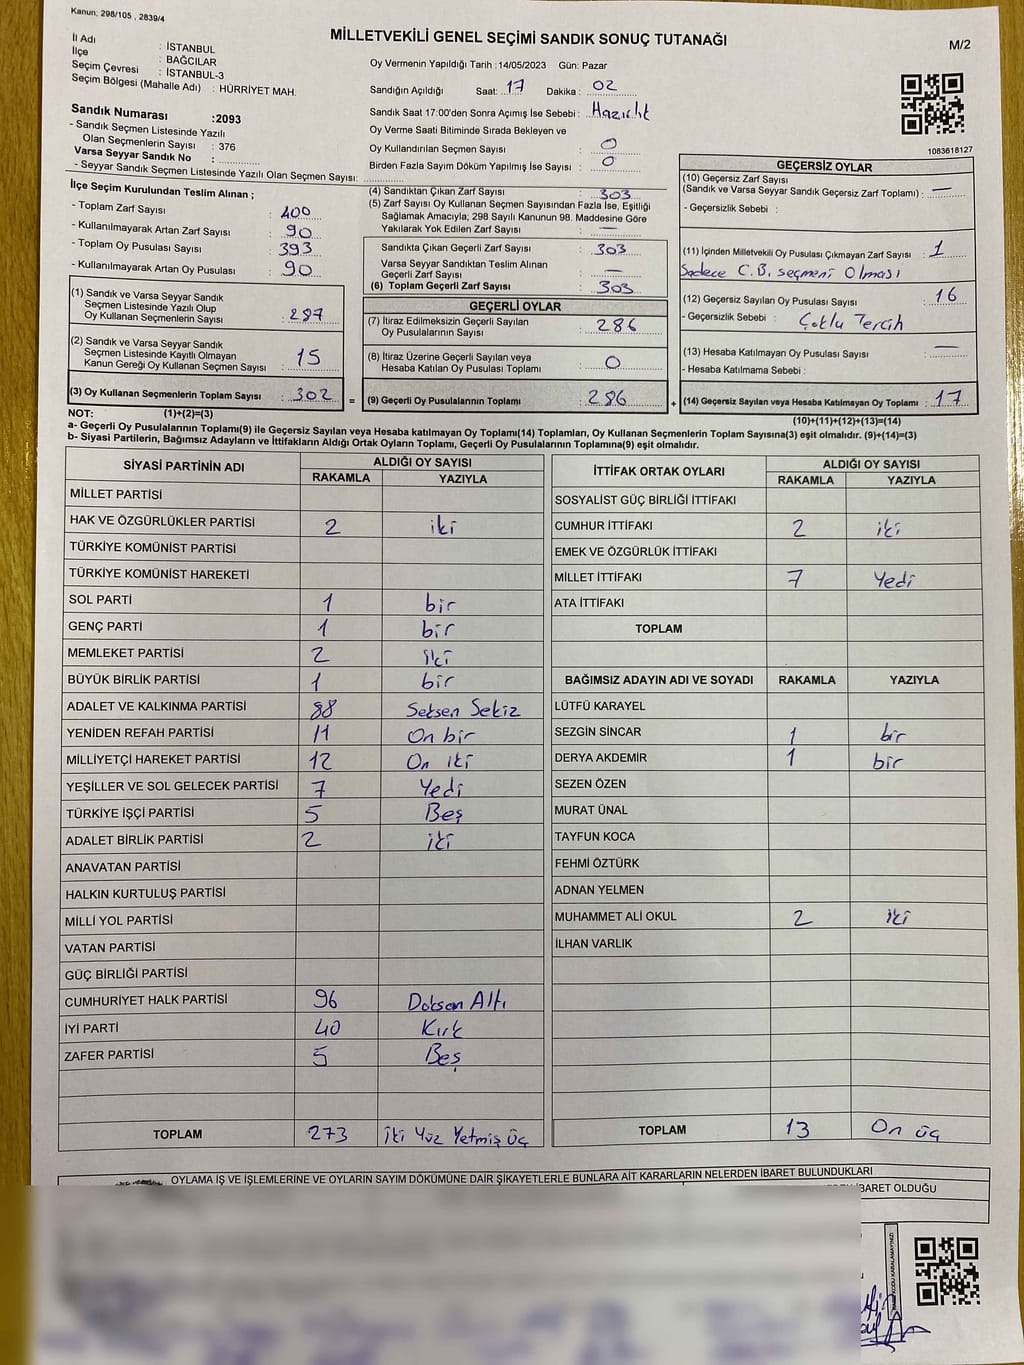 Kanun; 298/105 , 2839/4
MİLLETVEKİLİ GENEL SEÇİMİ SANDIK SONUÇ TUTANAĞI
M/2
İl Adı : İSTANBUL
İlçe : BAĞCILAR
Seçim Çevresi : İSTANBUL-3
Seçim Bölgesi (Mahalle Adı) : HÜRRİYET MAH.
Oy Vermenin Yapıldığı Tarih :14/05/2023 Gün: Pazar
Sandığın Açıldığı Saat: 17 Dakika: 02
Sandık Saat 17:00'den Sonra Açımış İse Sebebi : Hazırlık
Oy Verme Saati Bitiminde Sırada Bekleyen ve
Oy Kullandırılan Seçmen Sayısı : 0
Birden Fazla Sayım Döküm Yapılmış İse Sayısı : 0
Sandık Numarası :2093
- Sandık Seçmen Listesinde Yazılı
Olan Seçmenlerin Sayısı : 376
Varsa Seyyar Sandık No :
- Seyyar Sandık Seçmen Listesinde Yazılı Olan Seçmen Sayısı:
1083618127
İlçe Seçim Kurulundan Teslim Alınan ;
- Toplam Zarf Sayısı : 400
- Kullanılmayarak Artan Zarf Sayısı : 90
- Toplam Oy Pusulası Sayısı : 393
- Kullanılmayarak Artan Oy Pusulası : 90
(1) Sandık ve Varsa Seyyar Sandık
Seçmen Listesinde Yazılı Olup
Oy Kullanan Seçmenlerin Sayısı : 287
(2) Sandık ve Varsa Seyyar Sandık
Seçmen Listesinde Kayıtlı Olmayan
Kanun Gereği Oy Kullanan Seçmen Sayısı : 15
(3) Oy Kullanan Seçmenlerin Toplam Sayısı : 302 =
(4) Sandıktan Çıkan Zarf Sayısı : 303
(5) Zarf Sayısı Oy Kullanan Seçmen Sayısından Fazla İse, Eşitliği
Sağlamak Amacıyla; 298 Sayılı Kanunun 98. Maddesine Göre
Yakılarak Yok Edilen Zarf Sayısı : —
Sandıkta Çıkan Geçerli Zarf Sayısı : 303
Varsa Seyyar Sandıktan Teslim Alınan
Geçerli Zarf Sayısı : —
(6) Toplam Geçerli Zarf Sayısı : 303
GEÇERLİ OYLAR
(7) İtiraz Edilmeksizin Geçerli Sayılan
Oy Pusulalarının Sayısı : 286
(8) İtiraz Üzerine Geçerli Sayılan veya
Hesaba Katılan Oy Pusulası Toplamı : 0
(9) Geçerli Oy Pusulalarının Toplamı : 286 +
GEÇERSİZ OYLAR
(10) Geçersiz Zarf Sayısı
(Sandık ve Varsa Seyyar Sandık Geçersiz Zarf Toplamı) : —
- Geçersizlik Sebebi :
(11) İçinden Milletvekili Oy Pusulası Çıkmayan Zarf Sayısı : 1
Sadece C.B. seçmeni Olması
(12) Geçersiz Sayılan Oy Pusulası Sayısı : 16
- Geçersizlik Sebebi : Çoklu Tercih
(13) Hesaba Katılmayan Oy Pusulası Sayısı : —
- Hesaba Katılmama Sebebi :
(14) Geçersiz Sayılan veya Hesaba Katılmayan Oy Toplamı : 17
NOT: (1)+(2)=(3) (10)+(11)+(12)+(13)=(14)
a- Geçerli Oy Pusulasının Toplamı(9) ile Geçersiz Sayılan veya Hesaba katılmayan Oy Toplamı(14) Toplamları, Oy Kullanan Seçmenlerin Toplam Sayısına(3) eşit olmalıdır. (9)+(14)=(3)
b- Siyasi Partilerin, Bağımsız Adayların ve İttifakların Aldığı Ortak Oyların Toplamı, Geçerli Oy Pusulasının Toplamına(9) eşit olmalıdır.
SİYASİ PARTİNİN ADI ALDIĞI OY SAYISI
RAKAMLA YAZIYLA
MİLLET PARTİSİ
HAK VE ÖZGÜRLÜKLER PARTİSİ 2 iki
TÜRKİYE KOMÜNİST PARTİSİ
TÜRKİYE KOMÜNİST HAREKETİ
SOL PARTİ 1 bir
GENÇ PARTİ 1 bir
MEMLEKET PARTİSİ 2 iki
BÜYÜK BİRLİK PARTİSİ 1 bir
ADALET VE KALKINMA PARTİSİ 88 Seksen Sekiz
YENİDEN REFAH PARTİSİ 11 On bir
MİLLİYETÇİ HAREKET PARTİSİ 12 On iki
YEŞİLLER VE SOL GELECEK PARTİSİ 7 Yedi
TÜRKİYE İŞÇİ PARTİSİ 5 Beş
ADALET BİRLİK PARTİSİ 2 iki
ANAVATAN PARTİSİ
HALKIN KURTULUŞ PARTİSİ
MİLLİ YOL PARTİSİ
VATAN PARTİSİ
GÜÇ BİRLİĞİ PARTİSİ
CUMHURİYET HALK PARTİSİ 96 Doksan Altı
İYİ PARTİ 40 Kırk
ZAFER PARTİSİ 5 Beş
TOPLAM 273 iki Yüz Yetmiş üç
İTTİFAK ORTAK OYLARI ALDIĞI OY SAYISI
RAKAMLA YAZIYLA
SOSYALIST GÜÇ BİRLİĞİ İTTİFAKI
CUMHUR İTTİFAKI 2 iki
EMEK VE ÖZGÜRLÜK İTTİFAKI
MİLLET İTTİFAKI 7 Yedi
ATA İTTİFAKI
TOPLAM
BAĞIMSIZ ADAYIN ADI VE SOYADI RAKAMLA YAZIYLA
LÜTFÜ KARAYEL
SEZGİN SİNCAR 1 bir
DERYA AKDEMİR 1 bir
SEZEN ÖZEN
MURAT ÜNAL
TAYFUN KOCA
FEHMİ ÖZTÜRK
ADNAN YELMEN
MUHAMMET ALİ OKUL 2 iki
İLHAN VARLIK
TOPLAM 13 On üç
OYLAMA İŞ VE İŞLEMLERİNE VE OYLARIN SAYIM DÖKÜMÜNE DAİR ŞİKAYETLERLE BUNLARA AİT KARARLARIN NELERDEN İBARET BULUNDUKLARI
İBARET OLDUĞU